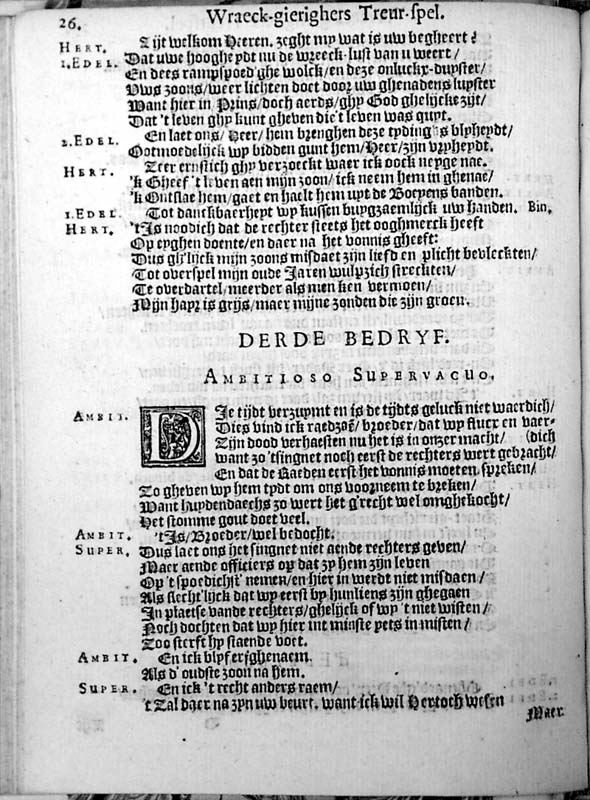 26. Wraeck-gierighers Treur-spel.
HERT. Zijt welkom Heeren. zeght my wat is uw begheert?
1.EDEL. Dat uwe hoogheydt nu de wreeck-lust van u weert/
En dees rampspoed'ghe wolck/en deze onluckx-duyster/
Uws zoons/weer lichten doet door uw ghenadens luyster
Want hier in Prins/doch aerds/ghy God ghelijcke zijt/
Dat 't leven ghy kunt gheven die 't leven was quyt.
2.EDEL. En laet ons/Heer/hem brenghen deze tyding's blyheydt/
Ootmoedelijck wy bidden gunt hem/Heer/zijn vryheydt.
HERT. Zeer ernstich ghy verzoeckt waer ick oock neyge nae.
'k Gheef 't leven aen mijn zoon/ick neem hem in ghenae/
'k Ontslae hem/gaet en haelt hem uyt de Boeyens banden.
1.EDEL. Tot danckbaerheyt wy kussen buygzaemlijck uw handen. Bin.
HERT. 't Is noodich dat de rechter steets het ooghmerck heeft
Op eyghen doente/en daer na het vonnis gheeft:
Dus ghelijck mijn zoons misdaet zijn liefd en plicht bevleckten/
Tot overspel mijn oude Jaren wulpzich streckten/
Te overdartel/meerder als men ken vermoen/
Mijn hayr is grijs/maer mijne zonden die zijn groen.
DERDE BEDRYF.
AMBITIOSO SUPERVACUO.
AMBIT. DIe tijdt verzuymt en is de tijdts geluck niet waerdich/
Dies vind ick raedzaem/broeder/dat wy flucx en vaer-
Zijn dood verhaesten nu het is in onzer macht/ (dich
want zo 'tsingnet noch eerst de rechters wert gebracht/
En dat de Raeden eerst het vonnis moeten spreken/
Zo gheven wy hem tydt om ons voorneem te breken/
Want huydendaechs zo wert het g'recht wel omghekocht/
Het stomme gout doet veel.
AMBIT. 't Is/Broeder/wel bedocht.
SUPER. Dus laet ons het singnet niet aende rechters geven/
Maer aende officiers op dat zy hem zijn leven
Op 't spoedichst nemen/en hier in werdt niet misdaen/
Als slecht'lijck dat wy eerst by hunliens zijn ghegaen
In plaetse vande rechters/ghelijck of wy 't niet wisten/
Noch dochten dat wy hier int minste yets in misten/
Zoo sterft hy staende voet.
AMBIT. En ick blyf erfghenaem.
Als d' oudste zoon na hem.
SUPER. En ick 't recht anders raem/
't Zal daer na zyn uw beurt. want ick wil Hertoch wesen
Maer